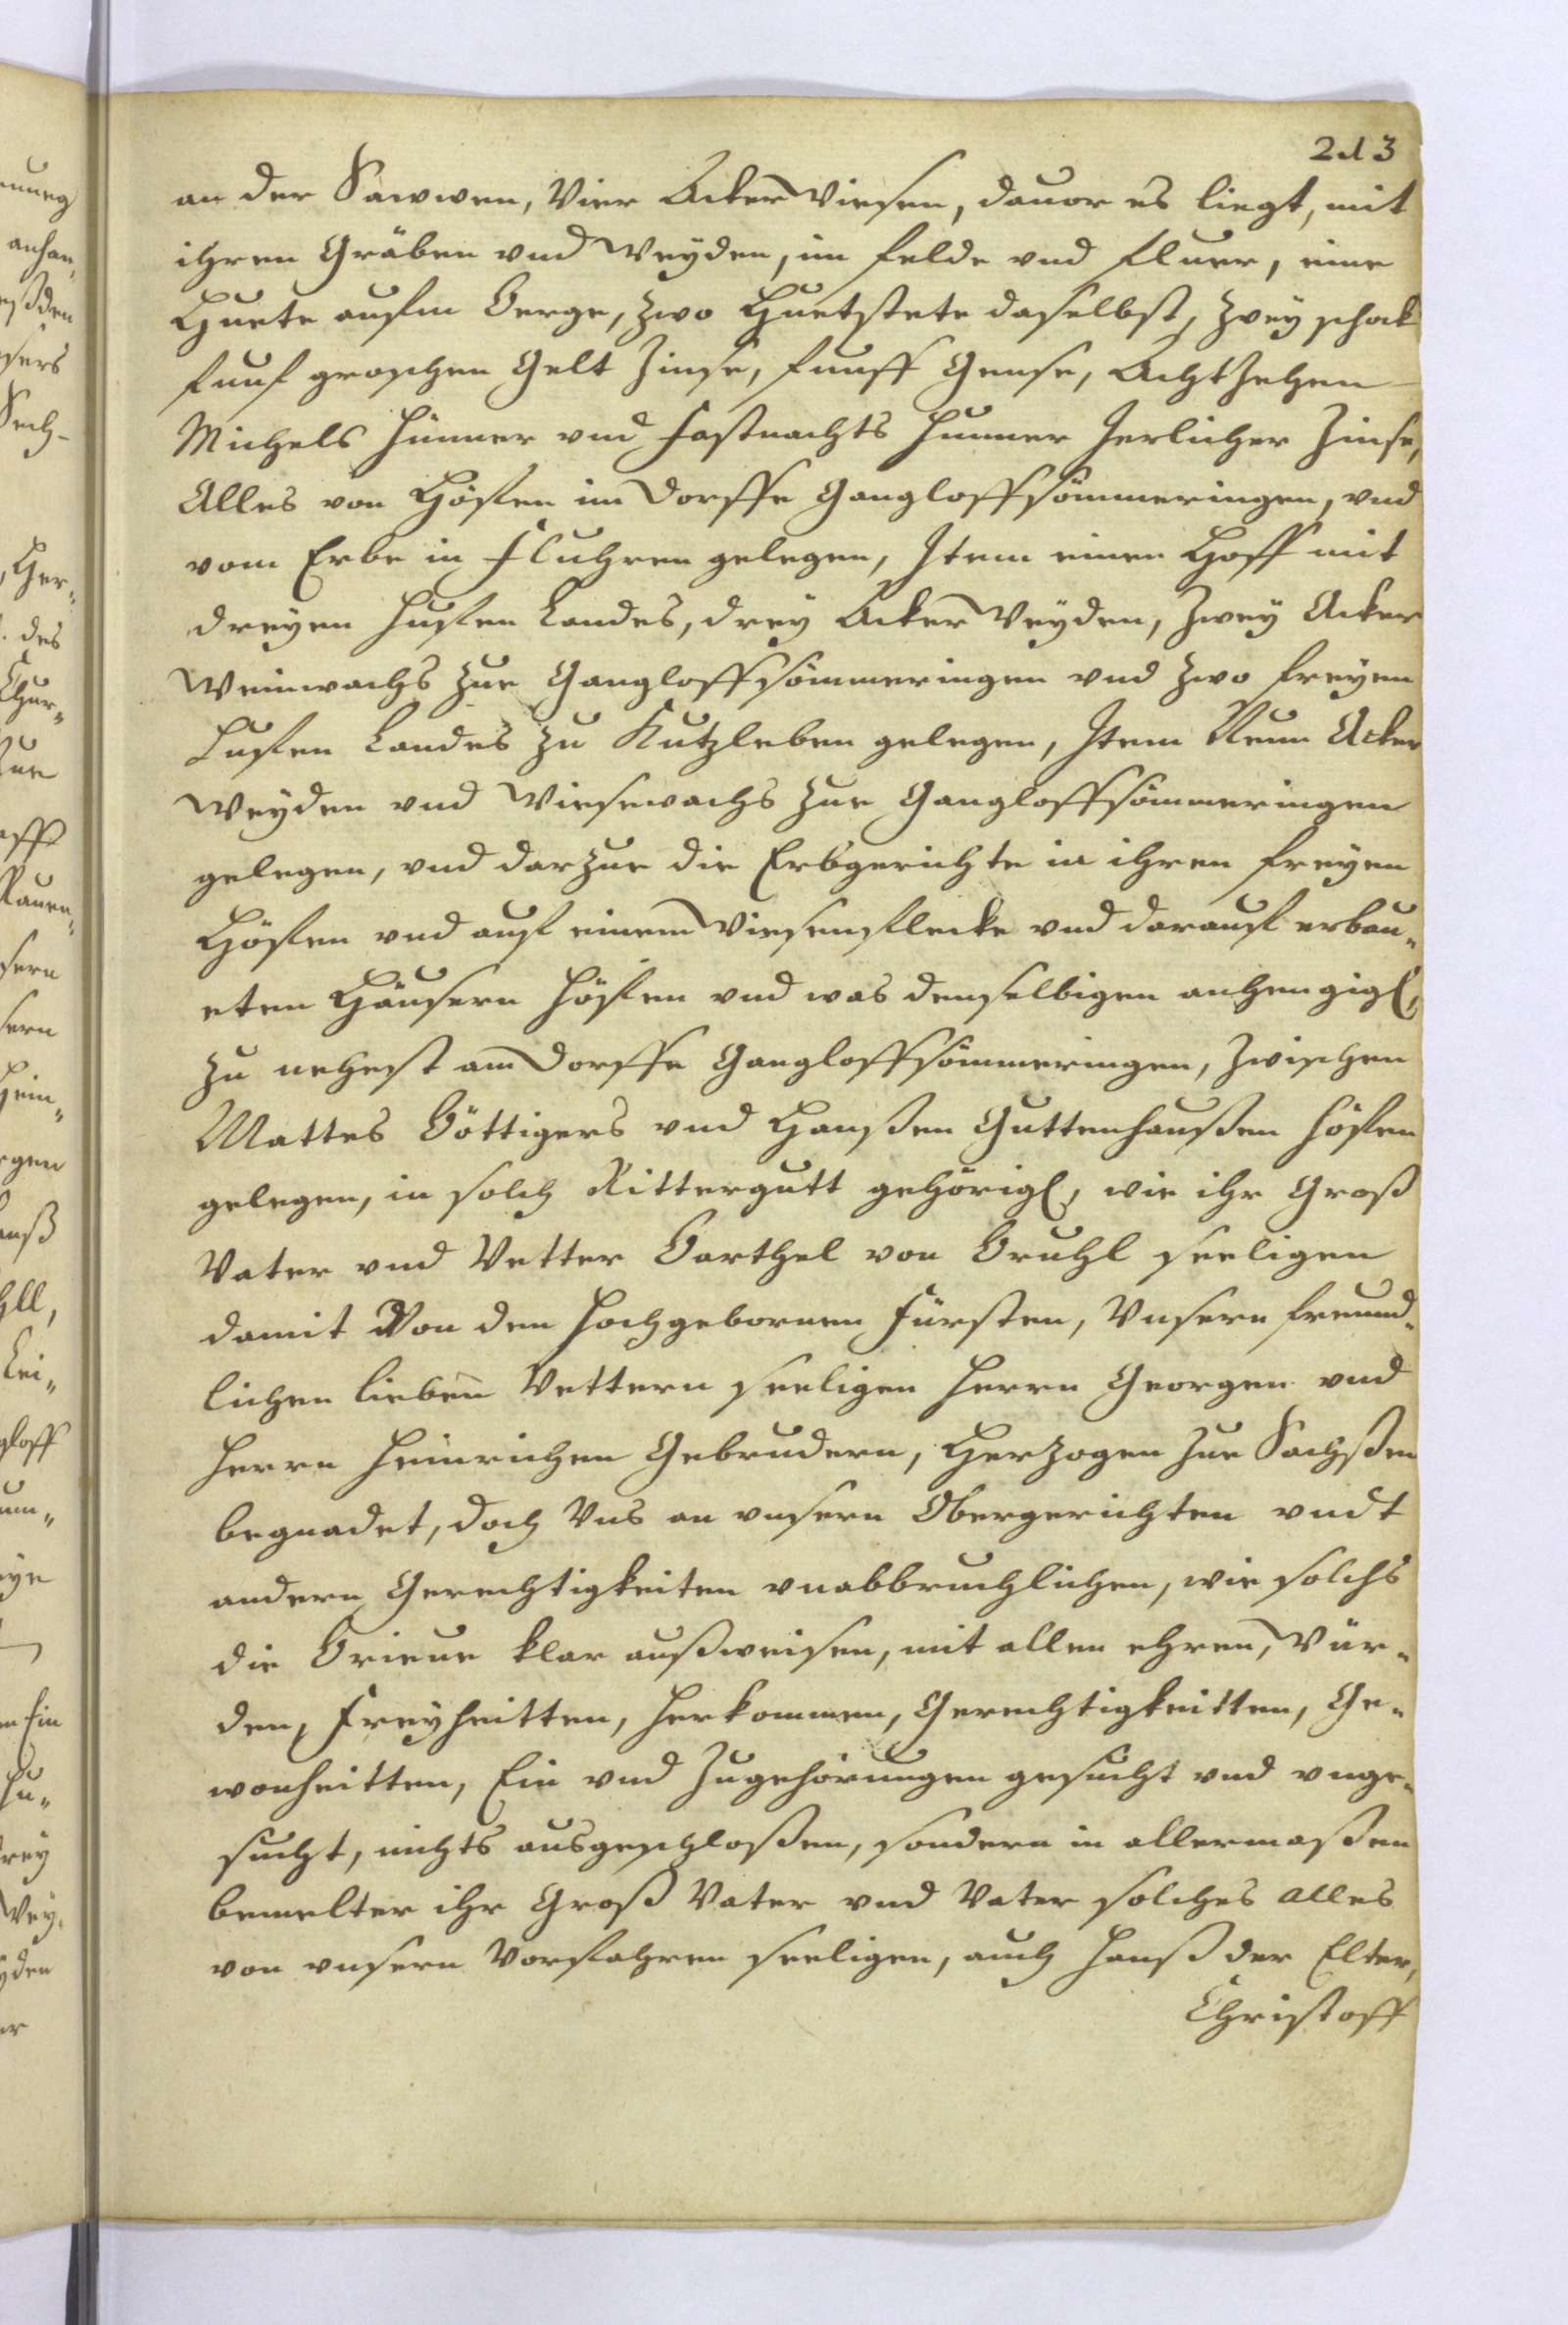 213
an der Sawwen, Vier Acker Wiesen, dauor es liegt, mit
ihren Gräben vnd Weyden, im felde vnd fluer, eine
Huete aufm Berge, zwo Huetstete daselbst, zwey schock
funf groschen Gelt Zinse, funff Gense, Achtzehen
Michels Hünner vnd Fastnachts Hunner Jerlicher Zinse,
Alles von Höfen im Dorffe Gangloffsömmeringen, vnd
vom Erbe in Fluhren gelegen, Item einen Hoff mit
dreyen Hufen Landes, drey Acker Weyden, Zwey Acker
Weinwachs zue Gangloffsömmeringen vnd zwo freyen
Hufen Landes zu Kutzleben gelegen, Item Neun Acker
Weyden vnd Wiesewachs zue Gangloffsömmeringen
gelegen, vnd darzue die Erbgerichte in ihren freyen
Höfen vnd auf einem Wiesenflecke vnd darauf erbau„
eten Häusern Höfen vnd was denselbigen anhengig,
zu nehest am Dorffe Gangloffsömmeringen, Zwischen
Mattes Böttigers vnd Hanßen Guttenhaußen Höfen
gelegen, in solch Rittergutt gehörig, wie ihr Groß
Vater vnd Vetter Barthel von Bruhl seeligen
damit Von den Hochgebornen Fürsten, Vnsern freund„
lichen lieben Vettern seeligen Herrn Georgen vnd
Herrn Heinrichen Gebrudern, Herzogen zue Sachßen
begnadet, doch Vns an vnsern Obergerichten vndt
andern Gerechtigkeiten vnabbruchlichen, wie solchs
die Brieue klar außweisen, mit allen ehren, Wür„
den, Freyheitten, Herkommen, Gerechtigkeitten, Ge„
wonheitten, Ein vnd Zugehörungen gesucht vnd vnge„
sucht, nichts ausgeschloßen, sondern in allermaßen
bemelter ihr Groß Vater vnd Vater solches alles
von vnsern Vorfahren seeligen, auch Hanß der Elter,
Christoff